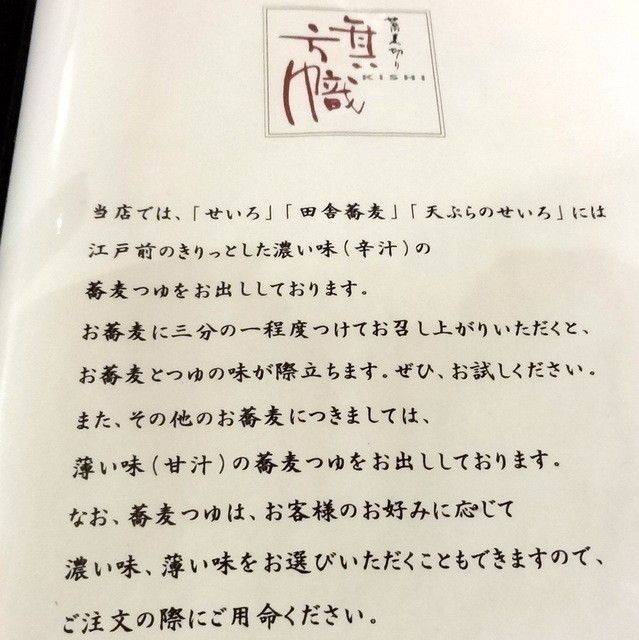 蕎麦切り
旗幟
KISHI
当店では、「せいろ」「田舎蕎麦」「天ぷらのせいろ」には
江戸前のきりっとした濃い味(辛汁)の
蕎麦つゆをお出ししております。
お蕎麦に三分の一程度つけてお召し上がりいただくと、
お蕎麦とつゆの味が際立ちます。ぜひ、お試しください。
また、その他のお蕎麦につきましては、
薄い味(甘汁)の蕎麦つゆをお出ししております。
なお、蕎麦つゆは、お客様のお好みに応じて
濃い味、薄い味をお選びいただくこともできますので、
ご注文の際にご用命ください。